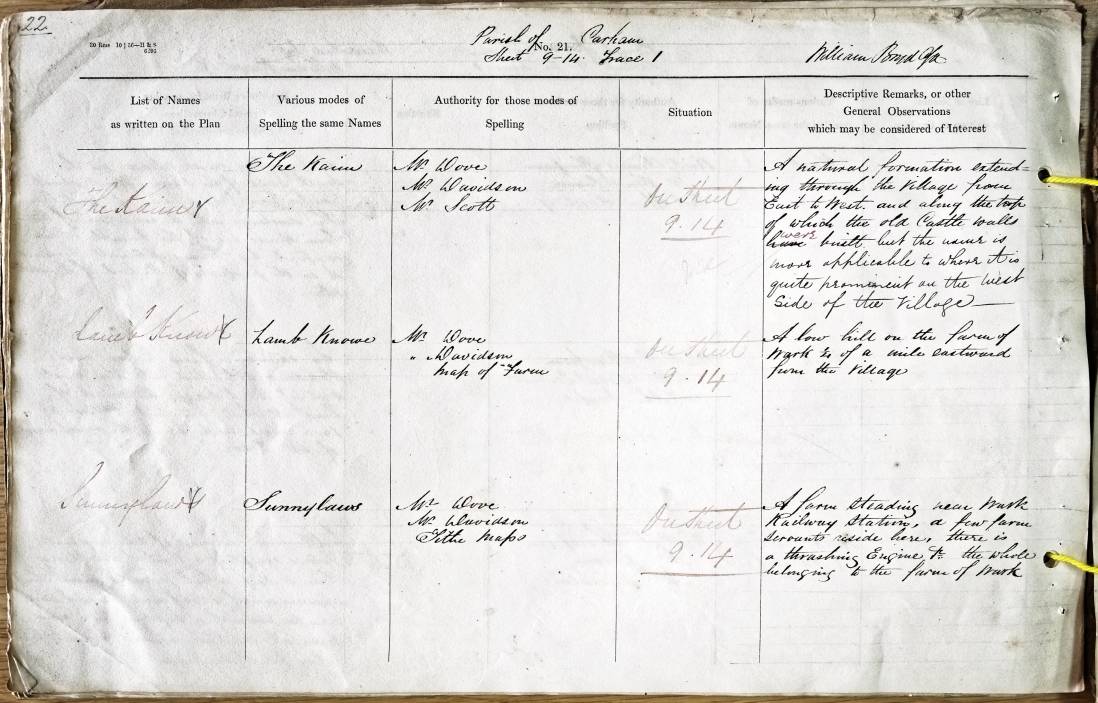 22
Parish of Carham
No. 21.
Sheet 9-14. Trace 1
William Boyd
List of Names
as written on the Plan
Various modes of
Spelling the same Names
Authority for those modes of
Spelling
Situation
Descriptive Remarks, or other
General Observations
which may be considered of Interest
The Kaim
The Kaim
Mr Dove
Mr Davidson
Mr Scott
On Sheet
9.14
A natural formation extend=
ing through the Village from
East to West. and along the top
of which the old Castle walls
have were built, but the name is
more applicable to where it is
quite prominent on the West
Side of the Village
Lamb Knowe
Lamb Knowe
Mr Dove
" Davidson
Map of Farm
On Sheet
9.14
A low hill on the farm of
Wark ¾ of a mile eastward
from the Village
Sunnylaws
Sunnylaws
Mr Dove
Mr Davidson
Tithe Maps
On Sheet
9.14
A farm steading near Wark
Railway Station, a few farm
Servants reside here, there is
a thrashing Engine &c the whole
belonging to the farm of Wark